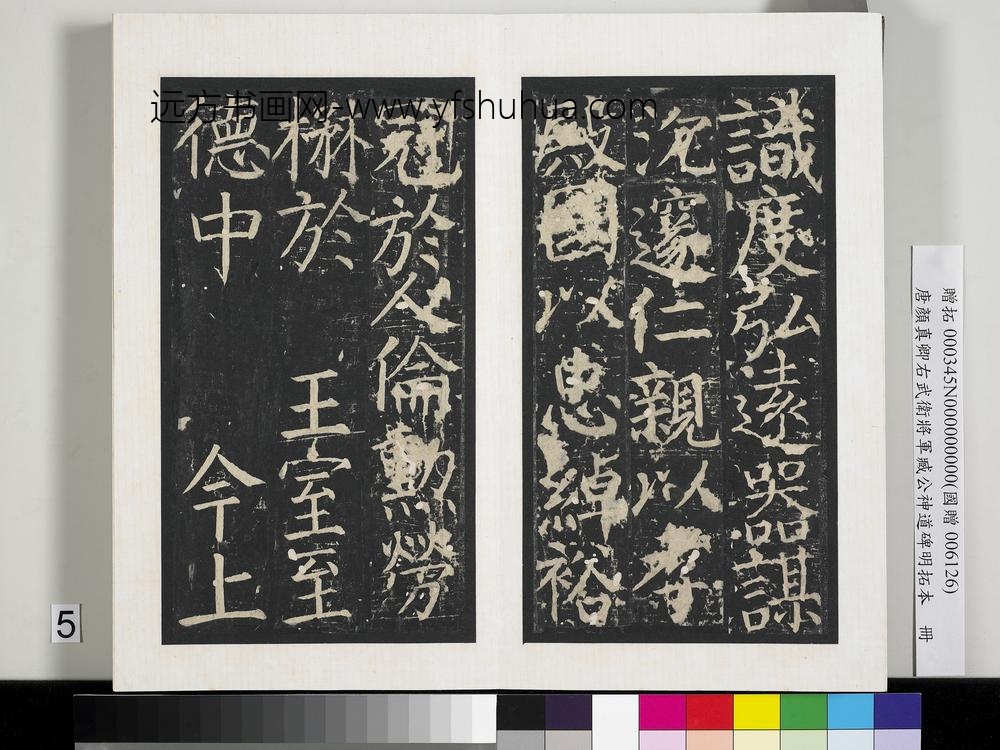 远方书画网-www.yfshuhua.com
識度弘遠器謀
沈邃仁親以孝
殿國以忠綽裕
冠於人倫勳勞
楙於 王室至
德中 今上
贈拓 000345N000000000(國贈 006126)
唐顏真卿右武衛將軍臧公神道碑明拓本 冊
5